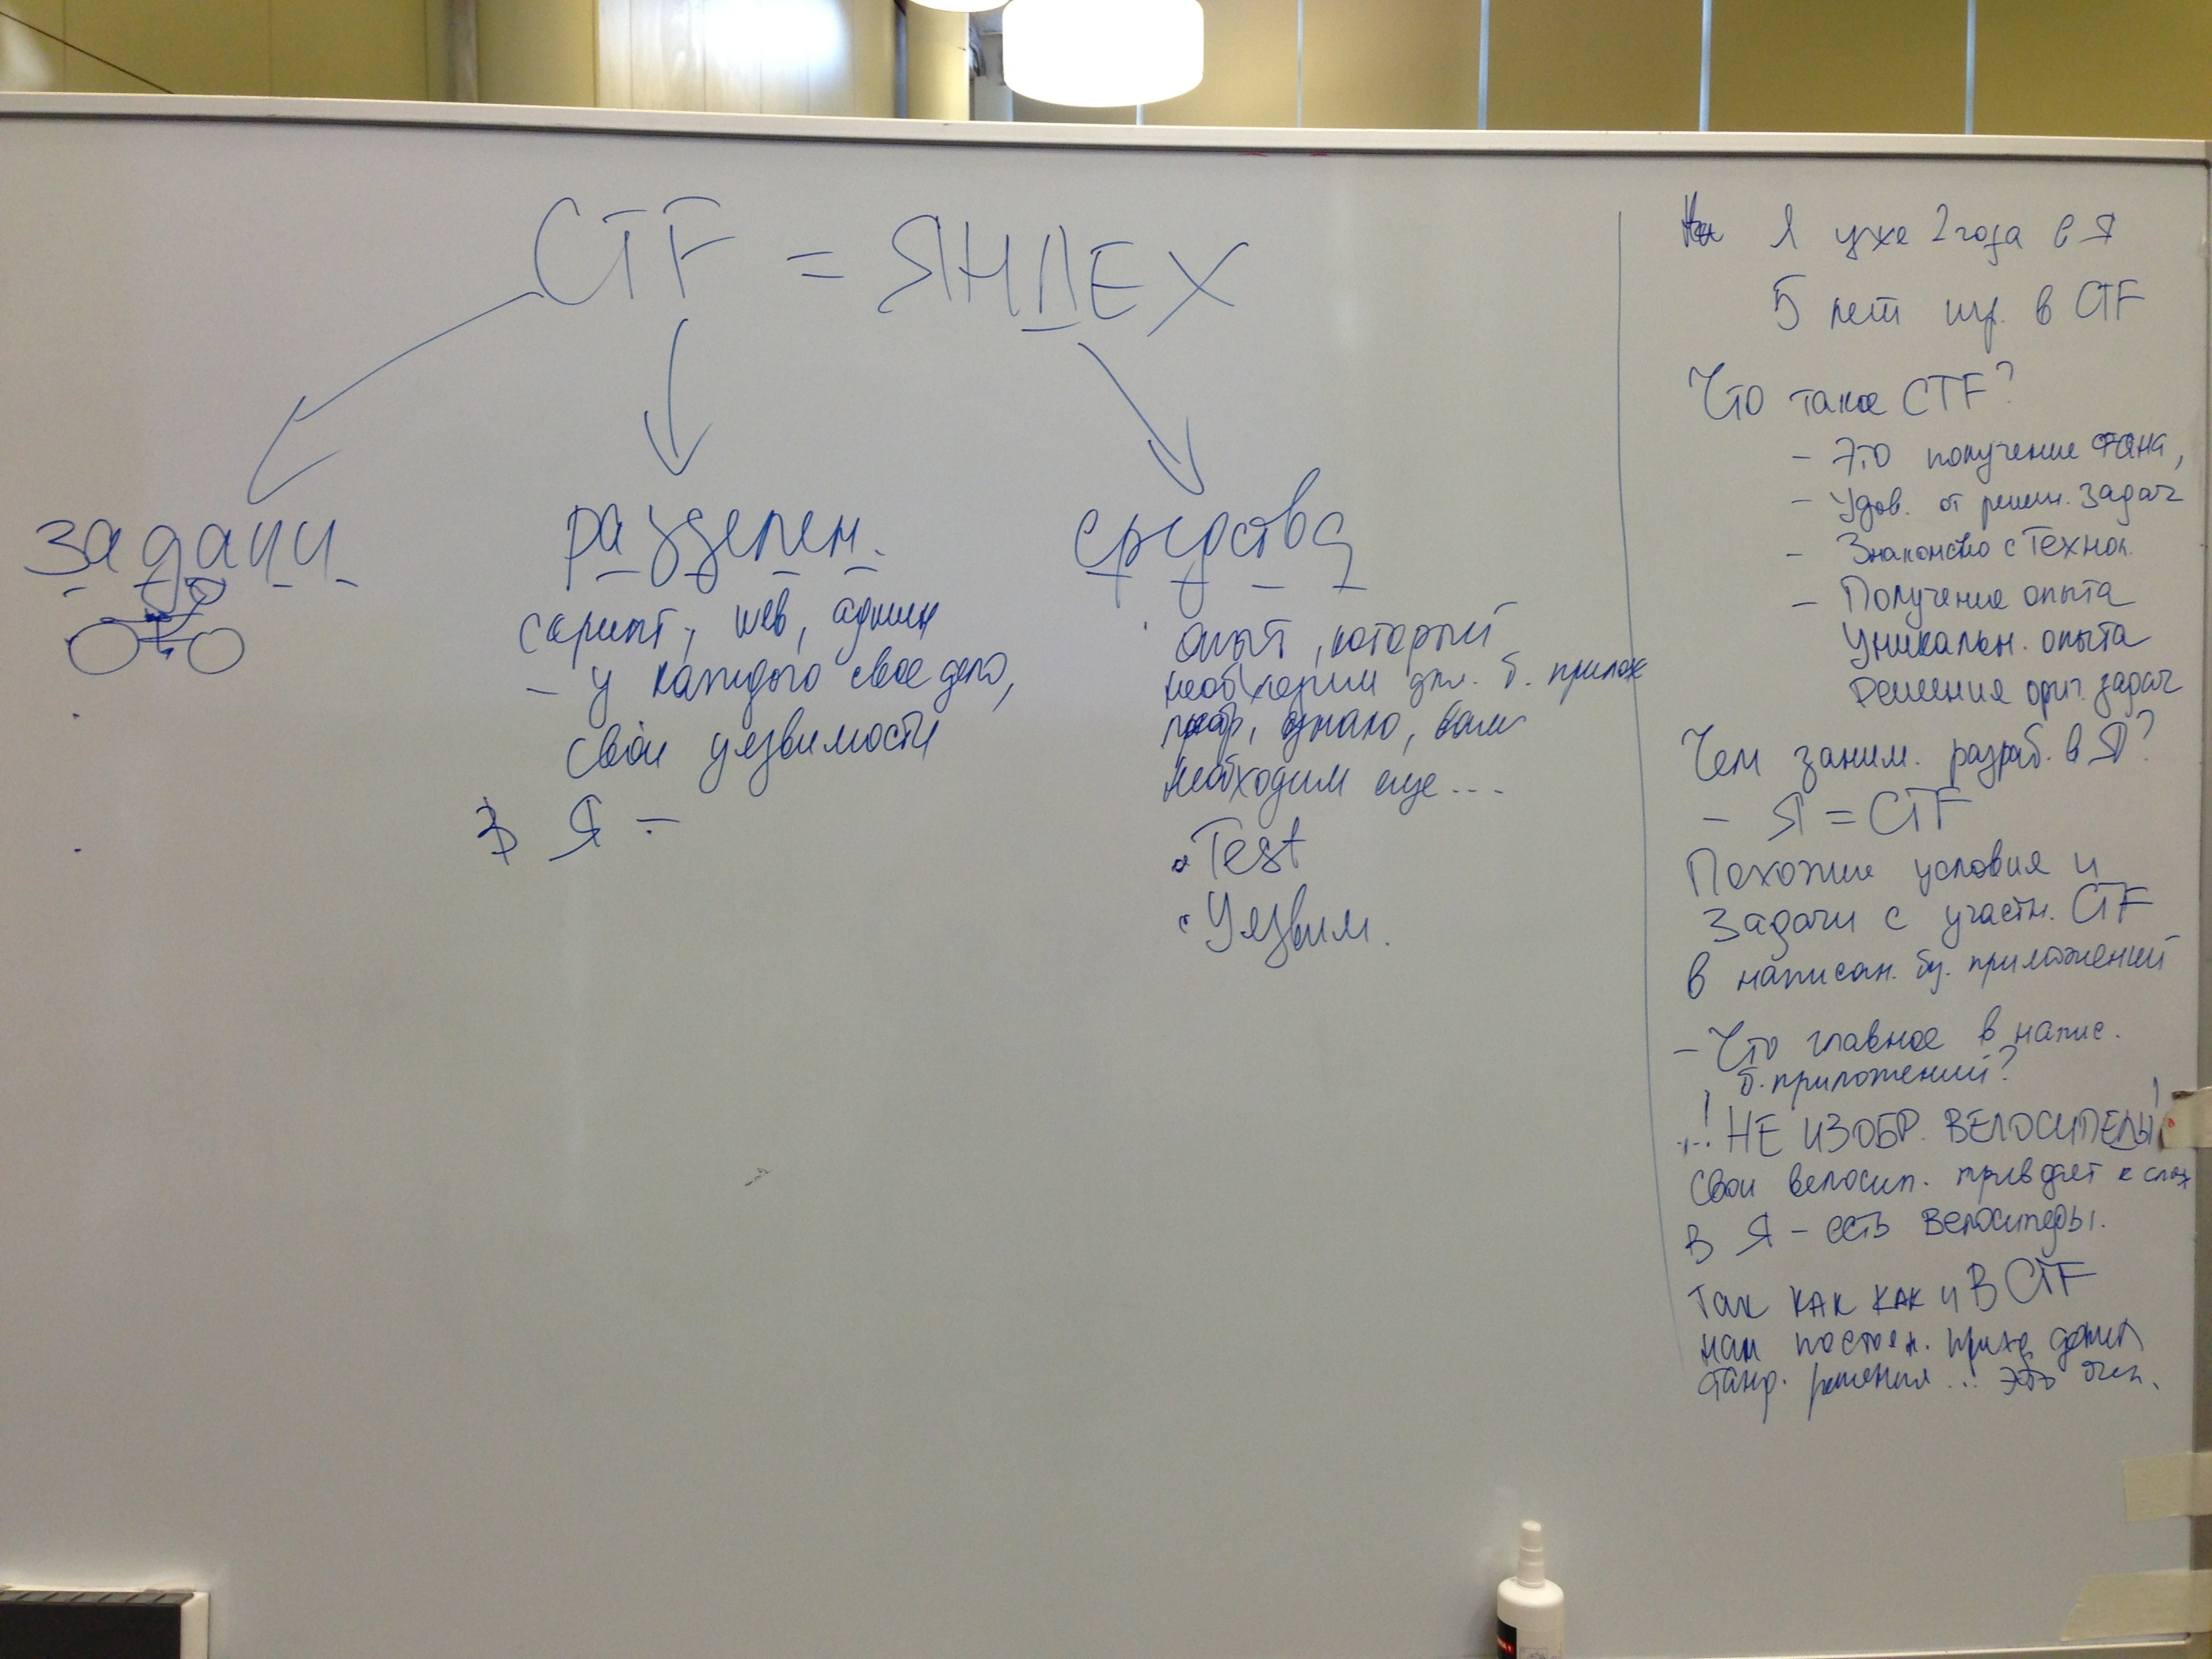 CTF = ЯНДЕХ
задачи
разделен.
скрипт, web, админ
- у каждого свое дело,
свои уязвимости
В Я -
средства
опыт, который
необходим дл. б. прилож
однако, вам
необходим еще ...
• Test
• Уязвим.
Я уже 2 года в Я
5 лет игр. в CTF
Что такое CTF?
- Это получение фана,
- Удов. от решен. задач
- Знакомство с технол.
- Получение опыта
Уникальн. опыта
Решения ориг. задач
Чем заним. разраб. в Я?
- Я = CTF
Похожие условия и
задачи с участн. CTF
в написан. бу. приложений
- Что главное в напис.
б. приложений?
! НЕ ИЗОБР. ВЕЛОСИПЕДЫ!
Свои велосип. приводят к
В Я - есть велосипеды.
Так как как и в CTF
нам постоян.
станд. решения ..! это